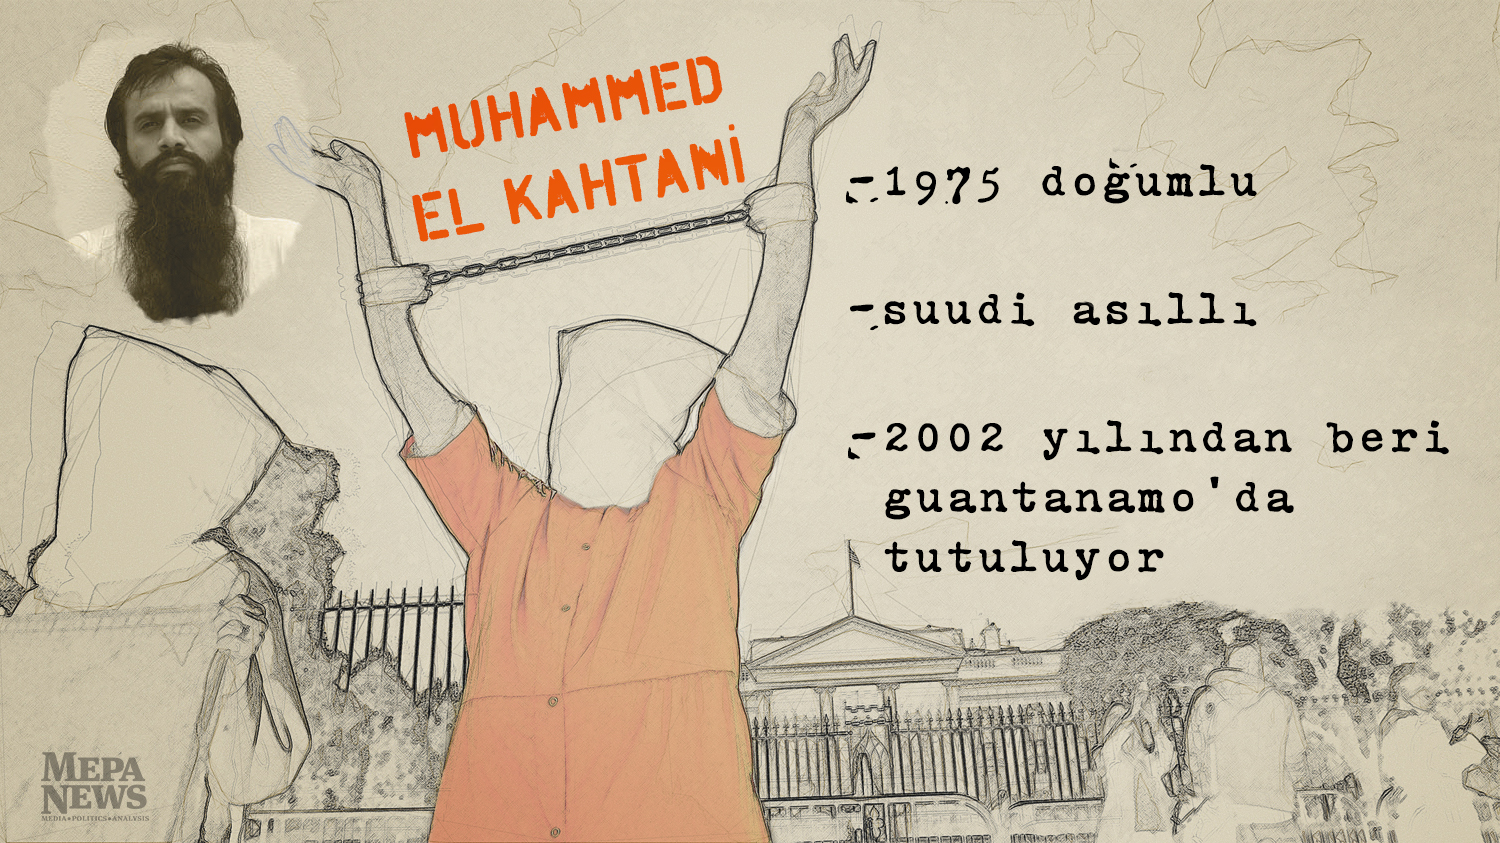 MUHAMMED
EL KAHTANİ
-1975 doğumlu
-suudi asıllı
-2002 yılından beri
guantanamo'da
tutuluyor
MEPA
NEWS
MEDIA•POLITICS•ANALYSIS